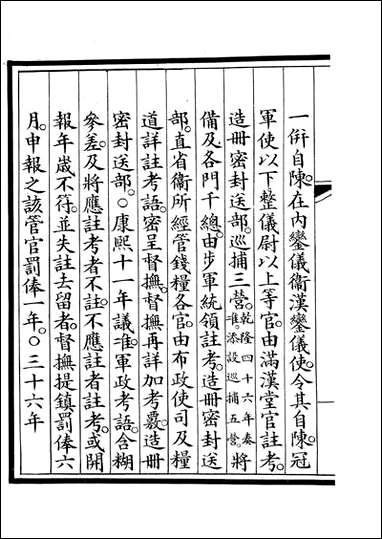 一併自陳。在內鑾儀衛漢鑾儀使。令其自陳。冠
軍使以下整儀尉以上等官。由滿漢堂官註考。
造冊密封送部。巡捕三營。乾隆四十六年奏准。添設巡捕五營。將
備及各門千總。由步軍統領註考。造冊密封送
部。直省衛所經管錢糧各官。由布政使司及糧
道詳註考語。密呈督撫。督撫再詳加考覈。造冊
密封送部。○康熙十一年議准。軍政考語。含糊
參差。及將應註考者不註。不應註者註考。或開
報年歲不符。並失註去留者。督撫提鎮罰俸六
月。申報之該管官罰俸一年。○三十六年